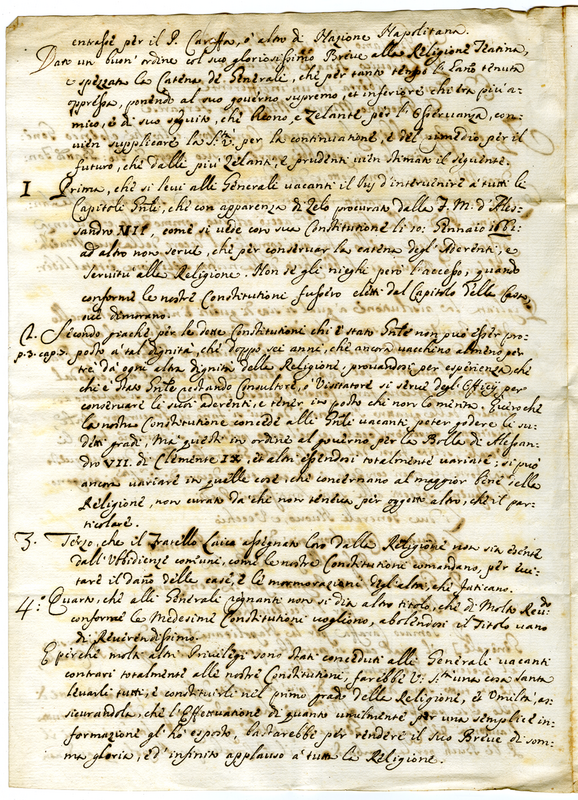 entrasse per il P. Caraffa, ò altro di Nazione Napolitana.
Dato un buon' ordine col suo gloriosissimo Breve alla Religione Teatina,
e spezzata la Catena de Generali, che per tanto tempo l'hanno tenuta
oppressa, ponendo al suo governo supremo, et inferiore chi era più a-
mico, e di suo seguito, che buono, e Zelante per l'Osservanza, con-
vien supplicare la S.tà V. per la continuatione, e del rimedio per il
futuro, che dalli più Zelanti, e prudenti vien stimato il seguente.
I Prima, che si levi alli Generali vacanti il Jus d'intervenire à tutti le
Capitoli Gñli, che con apparenza di Zelo procurato dalla F. M. d'Ales-
sandro VII, come si vede con sua Constitutione li 10: Gennaio
ad altro non serve, che per conservar la catena degl'Aderenti, e
servitù alla Religione. Non se gli nieghi però l'accesso, quando
conforme le nostre Constitutioni fussero eletti dal Capitolo della Casa,
ove dimorano.
2. Secondo giache per le dette Constitutioni chi è stato Gñle non può esser pro-
p. 3. cap. 7. posto à tal dignità, che doppo sei anni, che ancora vacchino almeno per
tre da ogni altra dignità della Religione, provandosi per esperienza che
chi è stato Gñle restando Consultore, ò Visitatore si serve degl'Officij per
conservare li suoi aderenti, e tener in posto chi non lo merita. E vero che
la nostra Constitutione concede alli Gñli vacanti poter godere li su-
detti gradi, ma questi in ordine al governo per la Bolla di Alessan-
dro VII. di Clemente IX, et altri essendosi totalmente variate; si può
ancora variare in quelle cose che concernano al maggior bene della
Religione, non curato da chi non teneva per oggetto altro, che il par-
ticolare.
3. Terzo, che il Fratello Laico assegnato loro dalla Religione non sia esente
dall'Ubbidienze comuni, come le nostre Constitutioni comandano, per evi-
tare il danno delle case, e le mormorazioni degl'altri, che faticano.
4. Quarto, che alli Generali regnanti non si dia altro titolo, che di Molto Rev.do
conforme le Medesime Constitutioni vogliono, abolendosi il Titolo vano
di Reverendissimo.
E perche molti altri Privilegi sono stati conceduti alli Generali vacanti
contrari totalmente alle nostre Constitutioni, farebbe V. S.tà una cosa santa
levarli tutti, e constituirli nel primo grado della Religione, et Umiltà, as-
sicurandola, che l'Osservatione di quanto umilmente per una semplice in-
formazione gl'hò esposto, bastarebbe per rendere il suo Breve di som-
ma gloria, ed'infinito applauso à tutta la Religione.